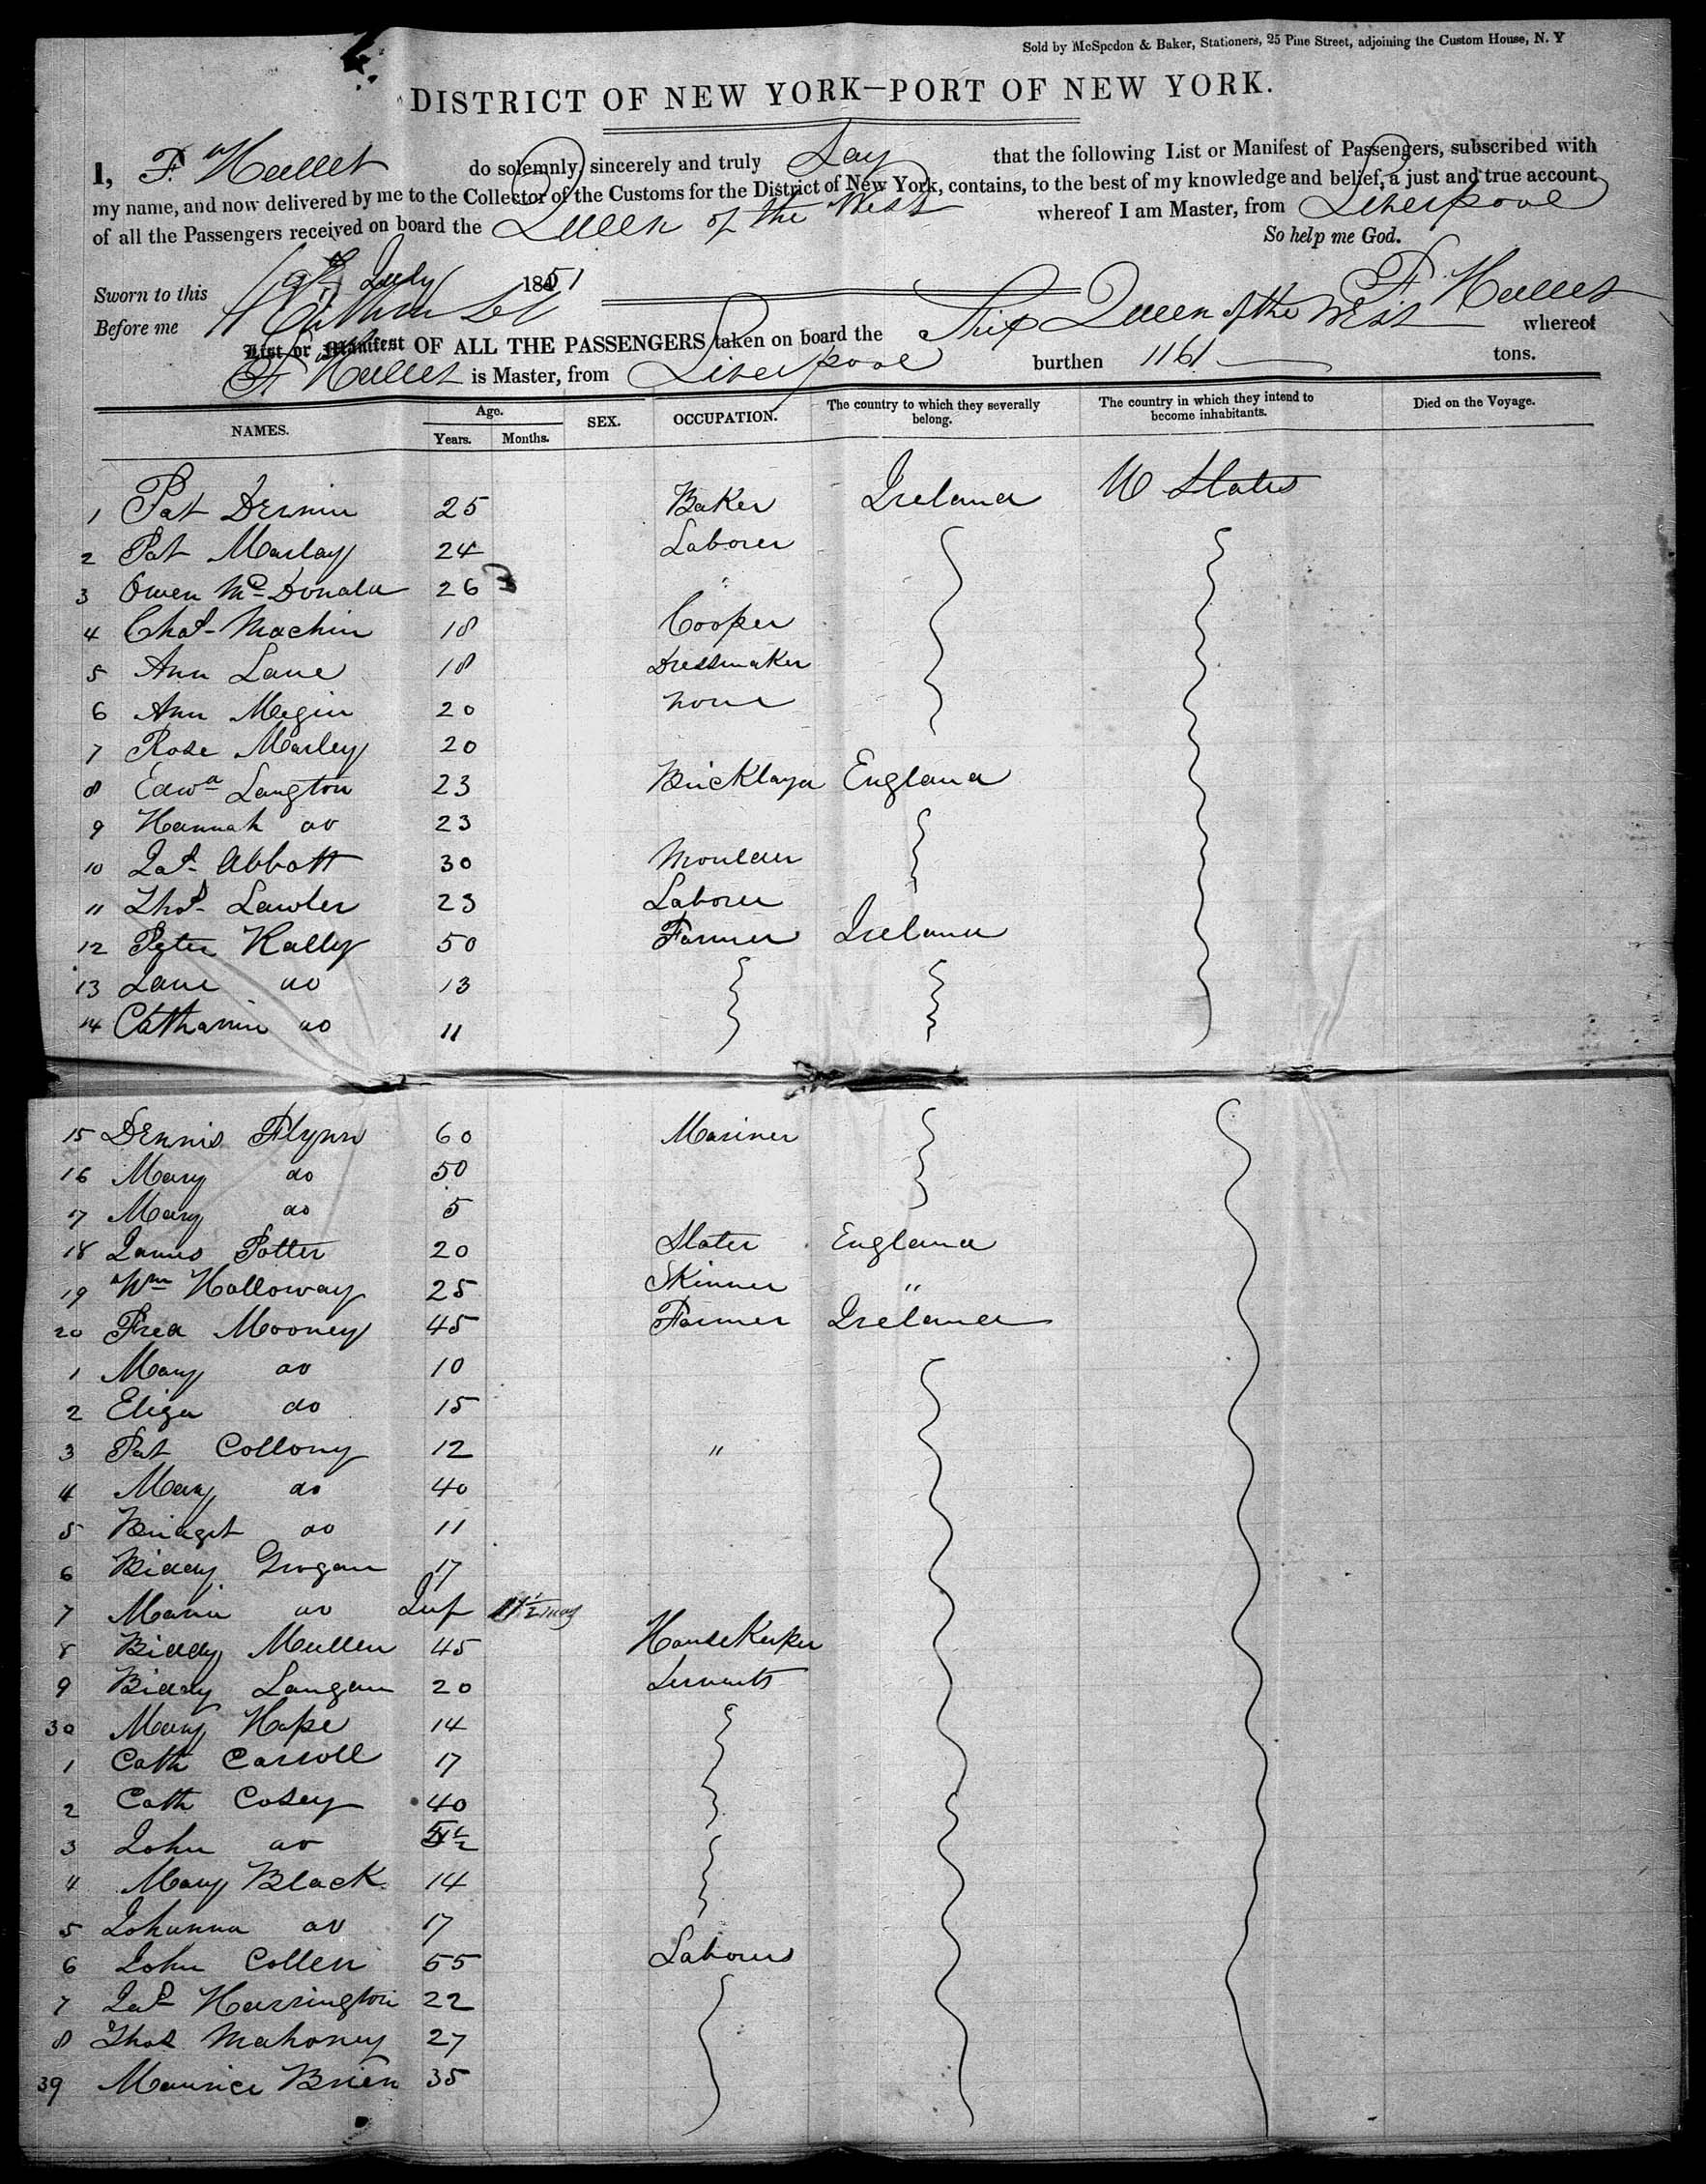 Sold by McSpedon & Baker, Stationers, 25 Pine Street, adjoining the Custom House, N. Y
DISTRICT OF NEW YORK—PORT OF NEW YORK.
I, F. Hallet do solemnly, sincerely and truly Say that the following List or Manifest of Passengers, subscribed with
my name, and now delivered by me to the Collector of the Customs for the District of New York, contains, to the best of my knowledge and belief, a just and true account
of all the Passengers received on board the Queen of the West whereof I am Master, from Liverpool
So help me God.
Sworn to this July 1851
Before me F Hallet
List or Manifest OF ALL THE PASSENGERS taken on board the Ship Queen of the West whereof
F Hallet is Master, from Liverpool burthen 1161 tons.
NAMES. Age. Years. Months. SEX. OCCUPATION. The country to which they severally belong. The country in which they intend to become inhabitants. Died on the Voyage.
1 Pat Dermin 25 Baker Ireland U States
2 Pat Marlay 24 Laborer
3 Owen Mc Donald 26 "
4 Chas Machin 18 Cooper
5 Ann Lane 18 Dressmaker
6 Ann Megin 20 none
7 Rose Marley 20
8 Edwd Langton 23 Bricklayer England
9 Hannah do 23
10 Jas Abbott 30 Moulder
11 Thos Lawler 23 Laborer
12 Peter Kally 50 Farmer Ireland
13 Jane do 13
14 Catharine do 11
15 Dennis Flynn 60 Mariner
16 Mary do 50
17 Mary do 5
18 James Potter 20 Slater England
19 Wm Holloway 25 Skinner "
20 Fred Mooney 45 Farmer Ireland
1 Mary do 10
2 Eliza do 15
3 Pat Collony 12 "
4 Mary do 40
5 Bridget do 11
6 Biddy Grogan 17
7 Maria do Inf
8 Biddy Mullen 45 House Keeper
9 Biddy Langan 20 Servants
30 Mary Hope 14
1 Cath Carroll 17
2 Cath Casey 40
3 John do
4 Mary Black 14
5 Johanna do 17
6 John Collen 55 Laborers
7 Jas Harrington 22
8 Thos Mahoney 27
39 Maurice Brien 35